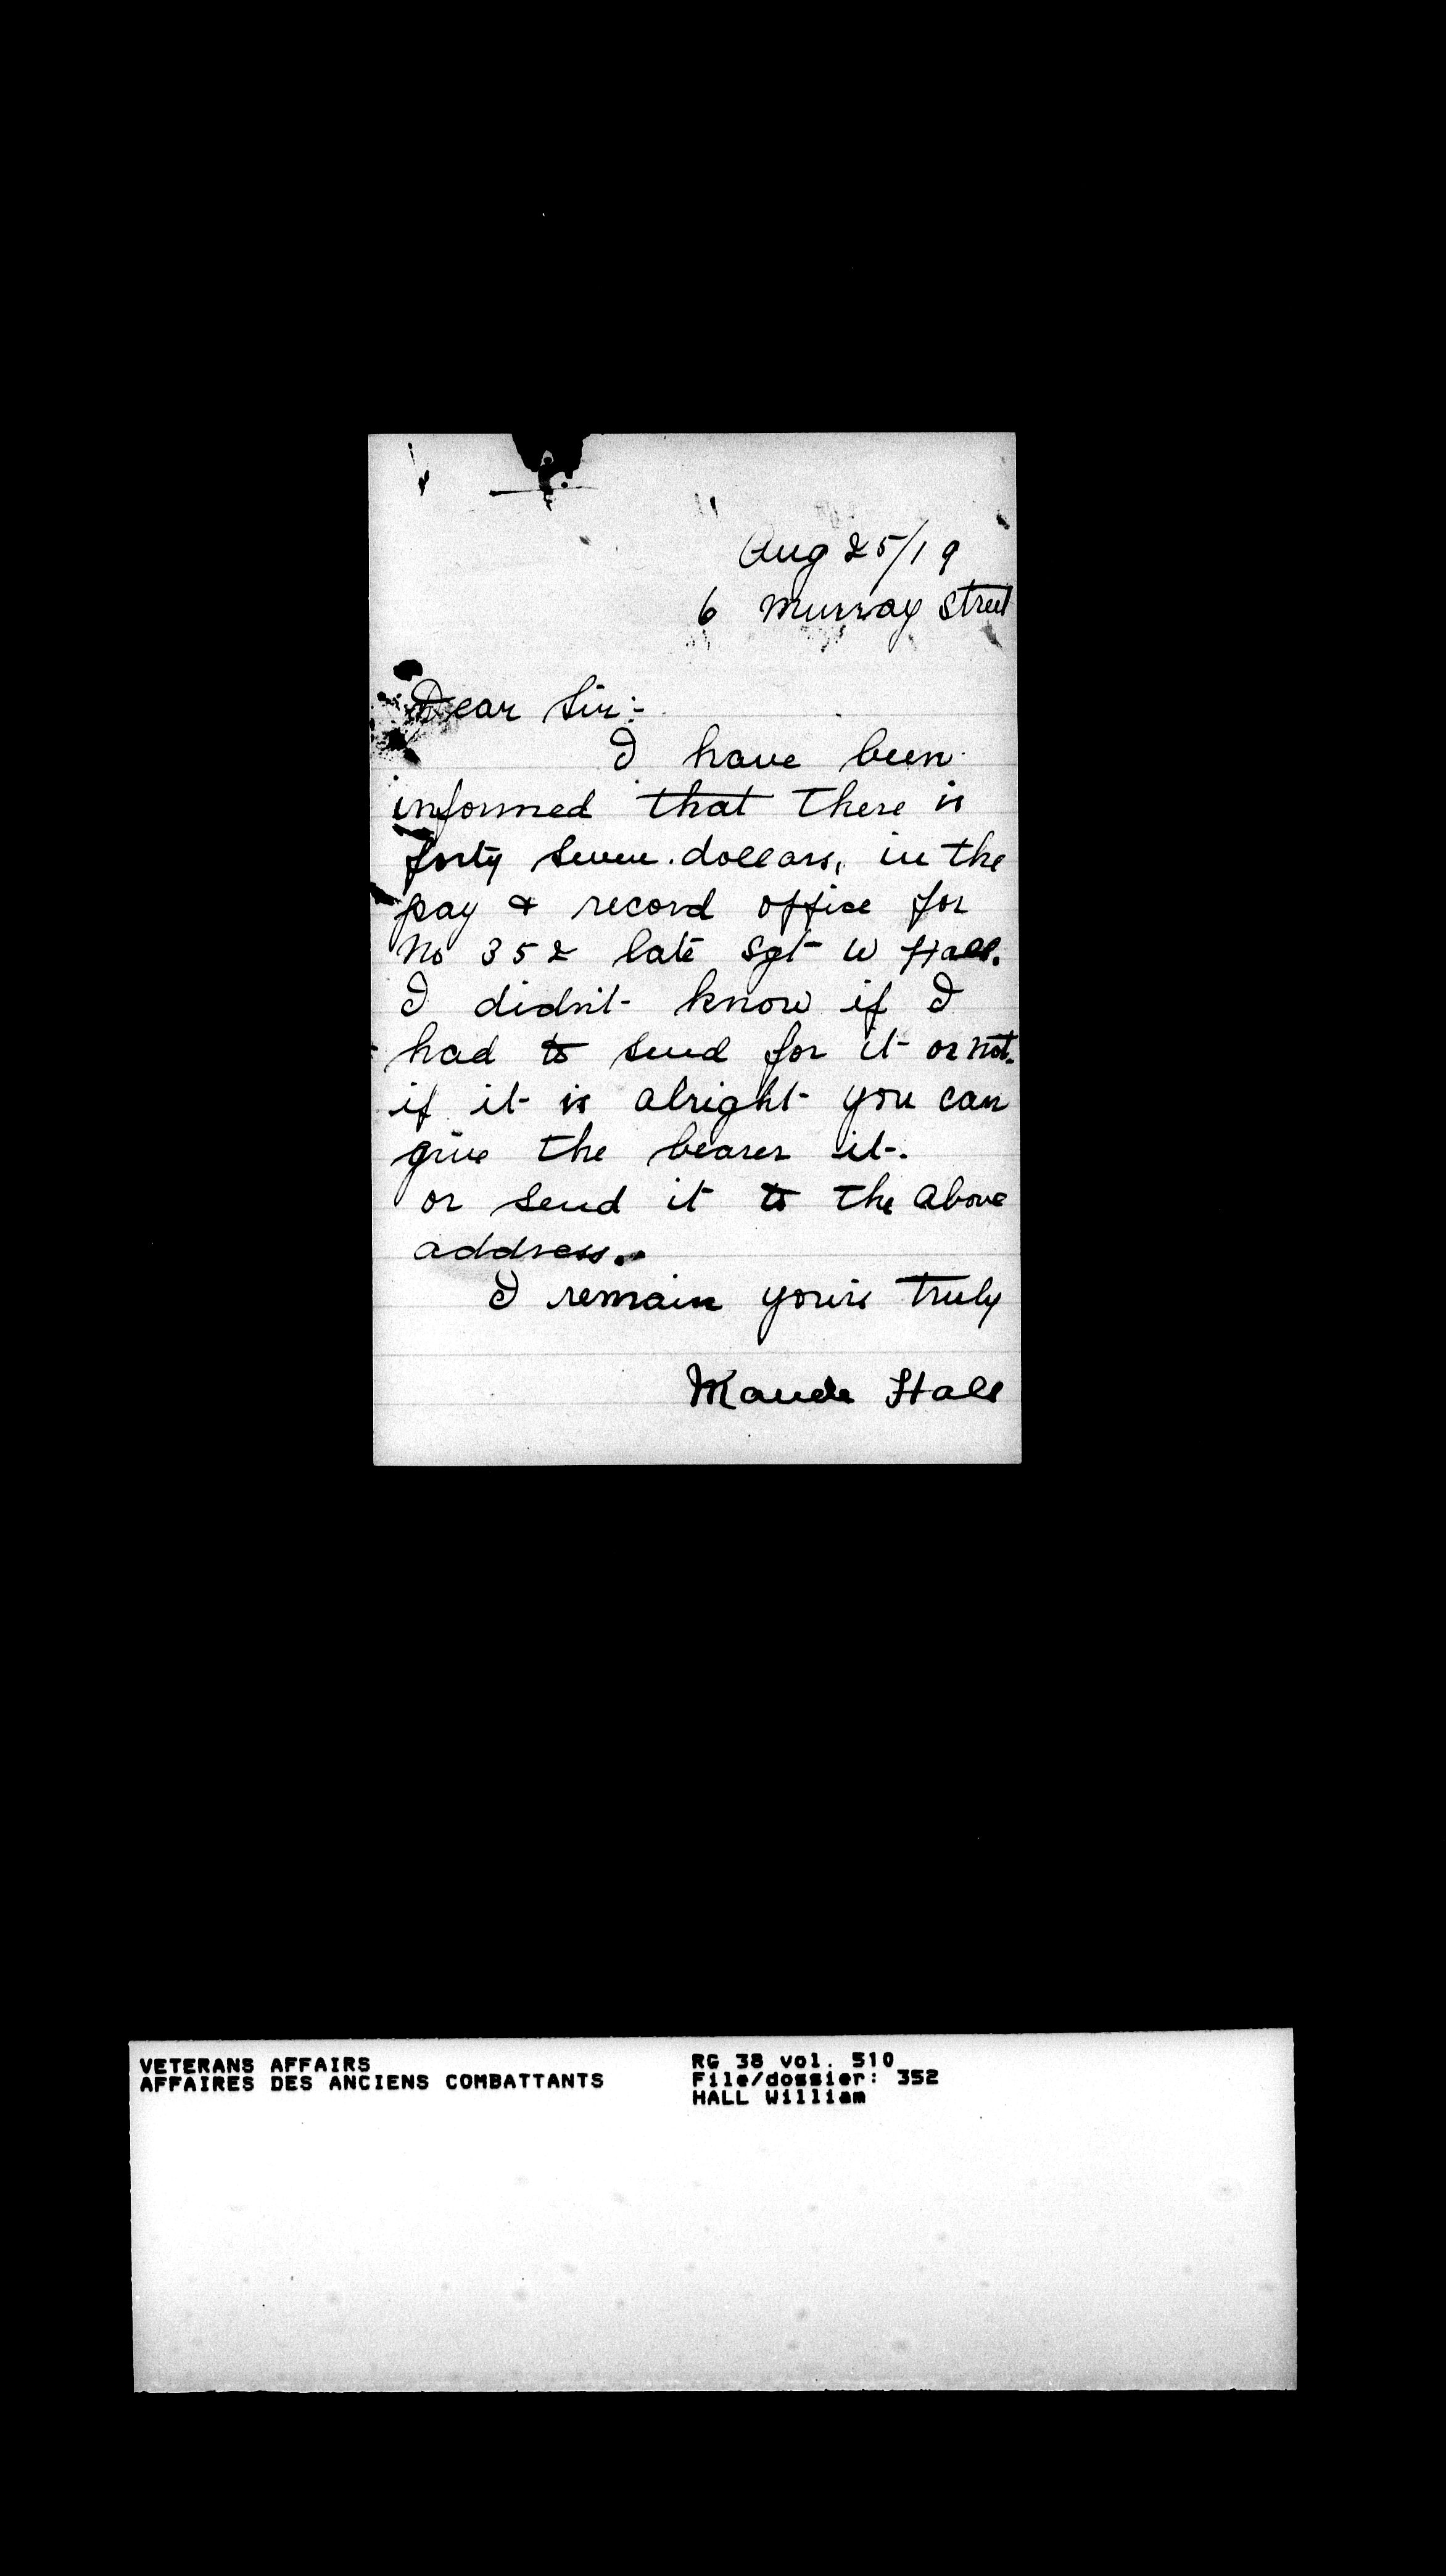 Aug 25/19
6 Murray Street
Dear Sir:-
I have been
informed that there is
forty seven dollars, in the
pay & record office for
No 352 late Sgt W Hall.
I didn't know if I
had to send for it or not.
if it is alright you can
give the bearer it.
or send it to the above
address.
I remain yours truly
Maude Hall
VETERANS AFFAIRS
AFFAIRES DES ANCIENS COMBATTANTS
RG 38 vol. 510
File/dossier: 352
HALL William